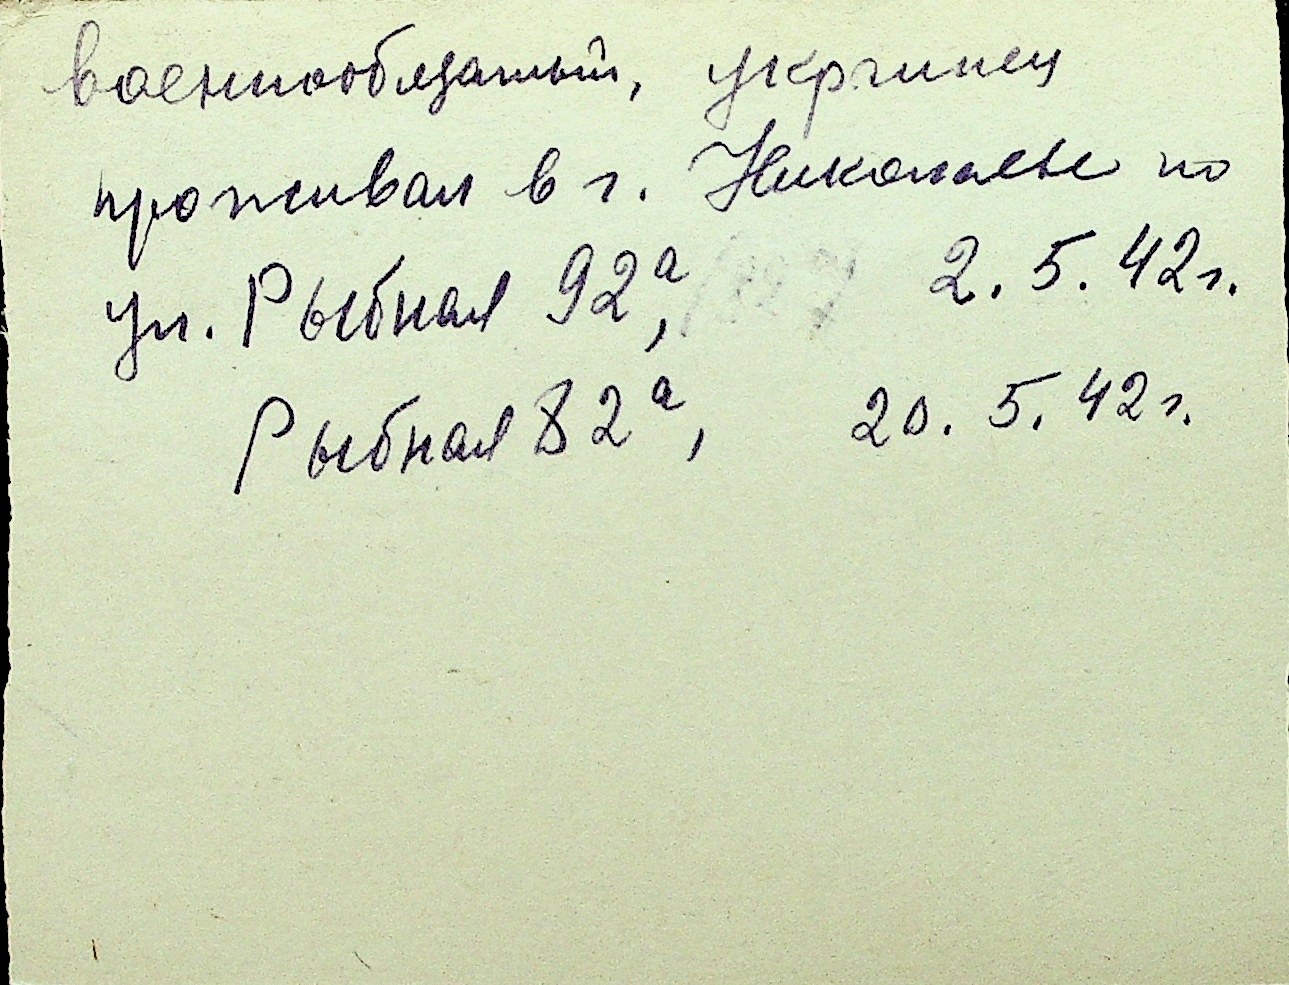 военнообязаный, украинец
проживал в г. Николаеве по
ул. Рыбная 92а, 2.5.42г.
Рыбная 82а, 20.5.42г.